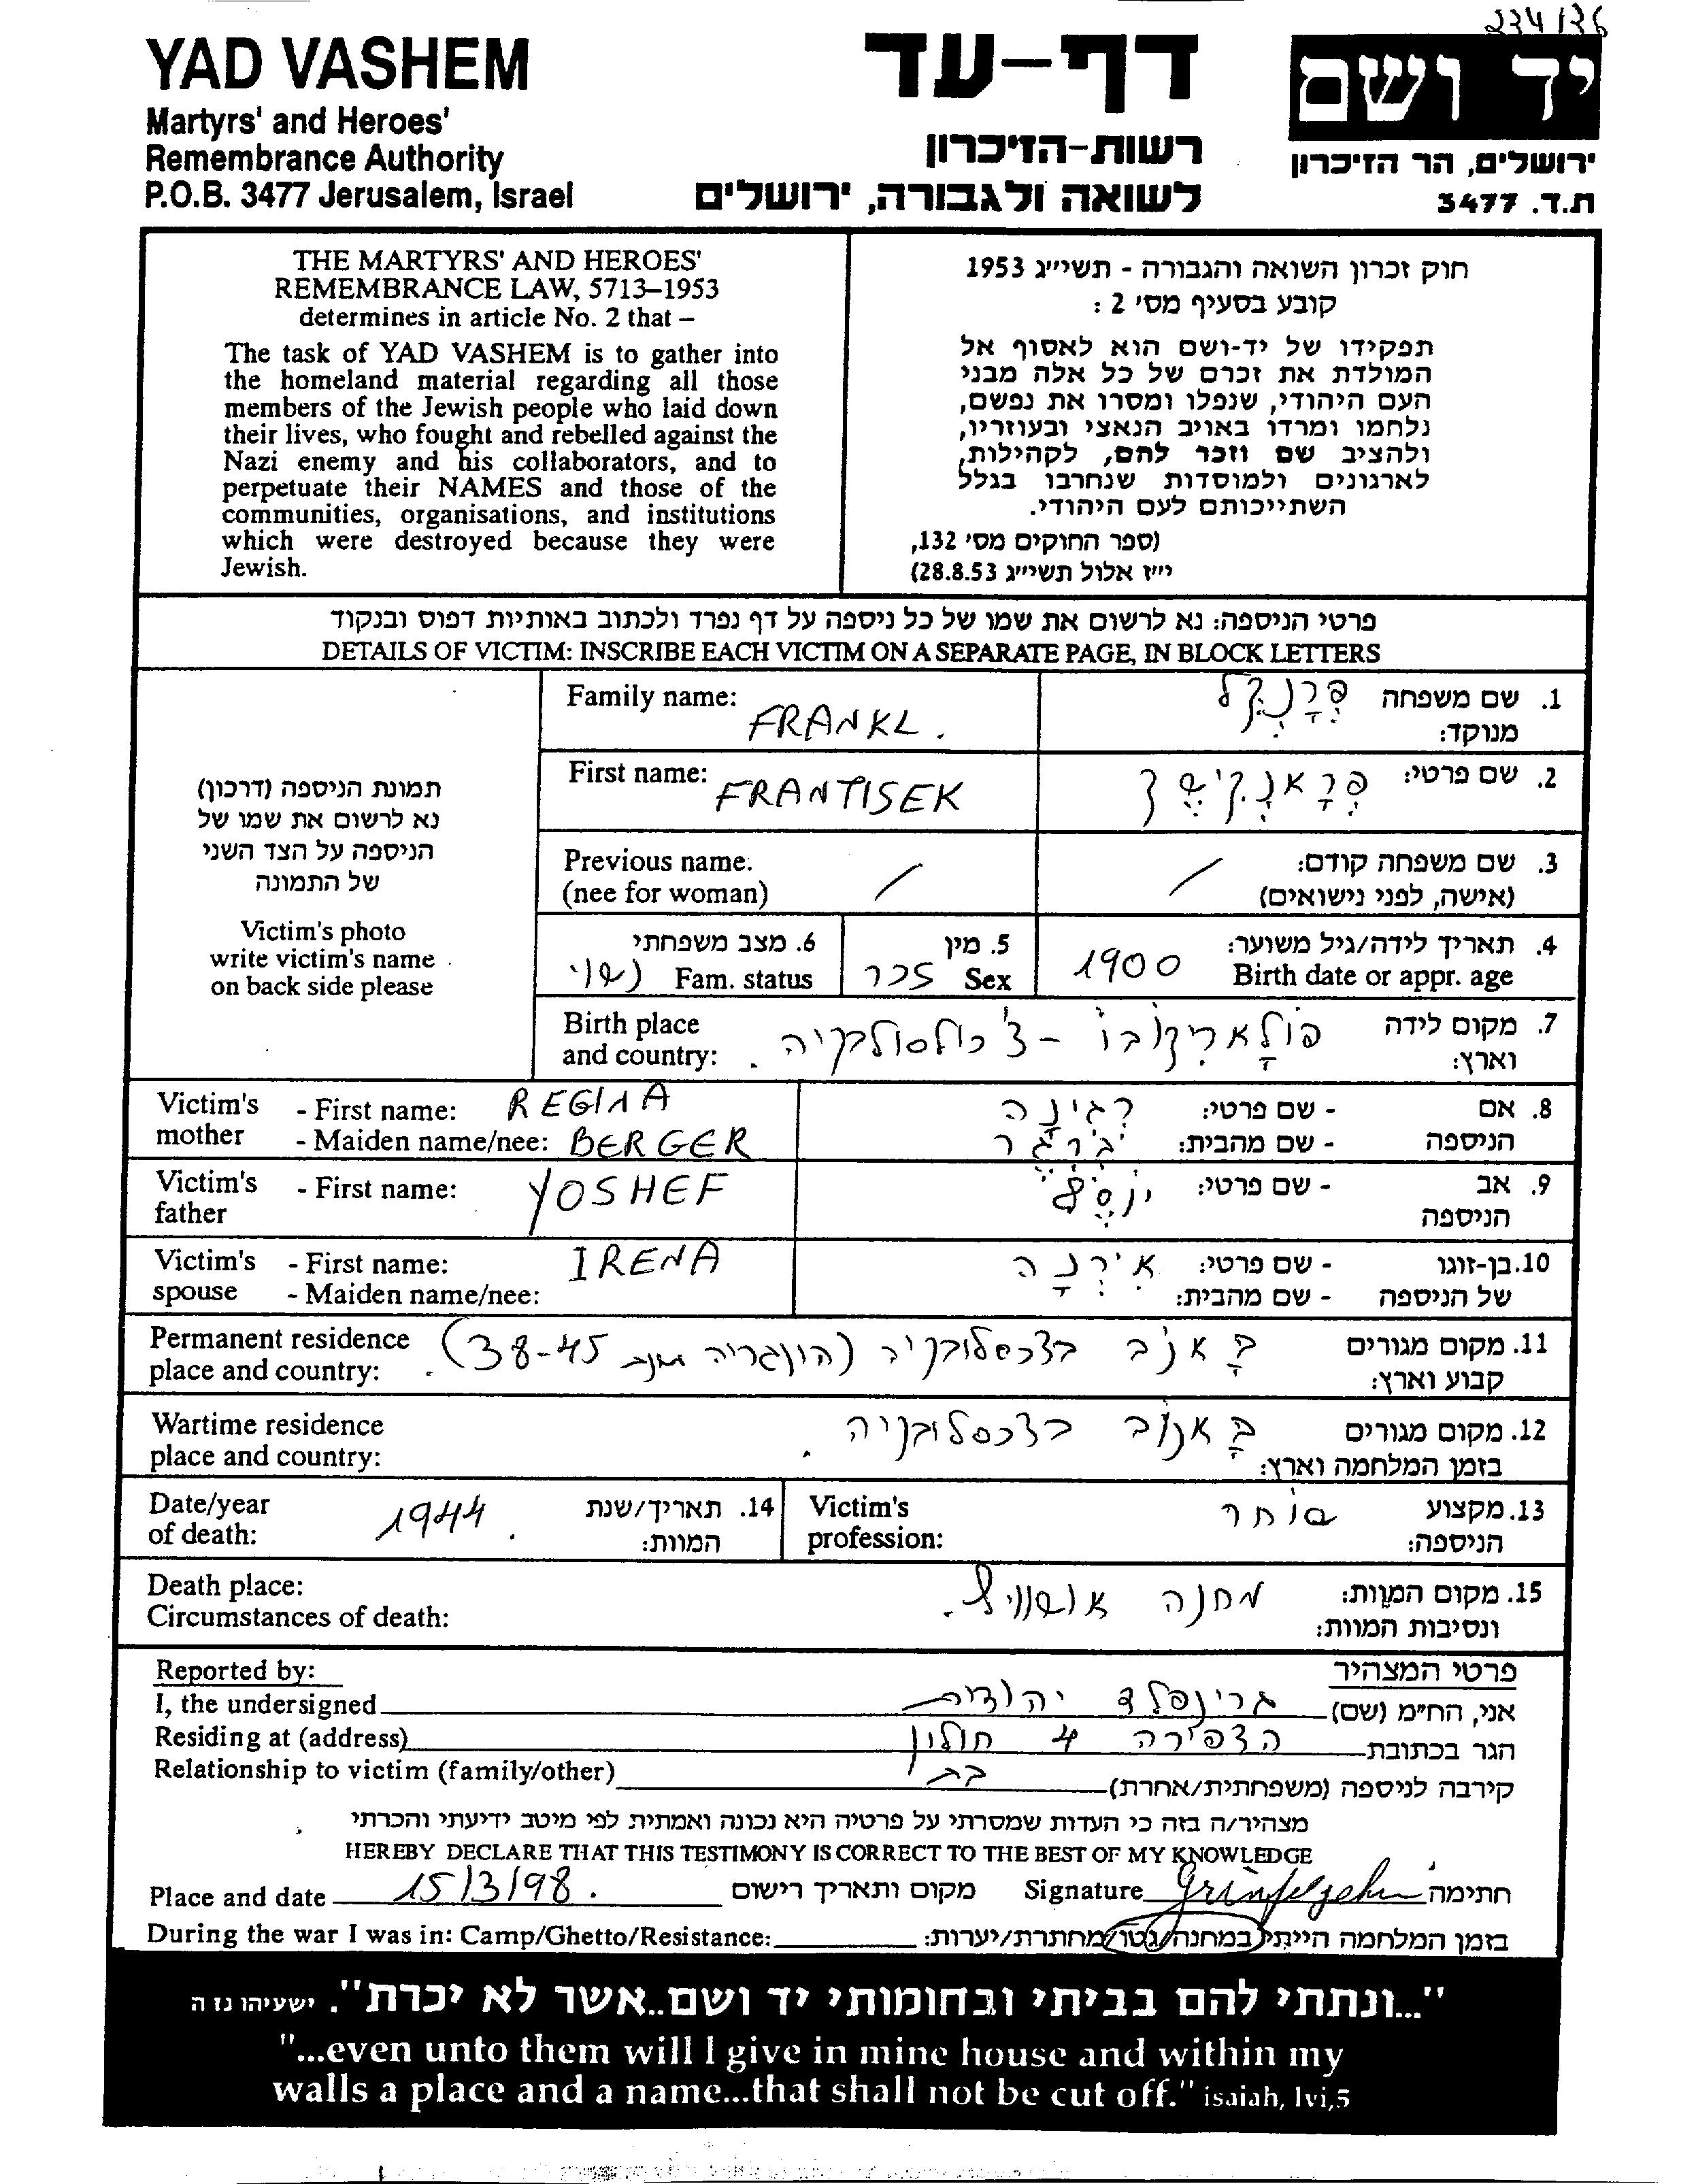 234136
YAD VASHEM
Martyrs' and Heroes'
Remembrance Authority
P.O.B. 3477 Jerusalem, Israel
דף-עד
רשות-הזיכרון
לשואה ולגבורה, ירושלים
יד ושם
ירושלים, הר הזיכרון
ת.ד. 3477
THE MARTYRS' AND HEROES'
REMEMBRANCE LAW, 5713–1953
determines in article No. 2 that –
The task of YAD VASHEM is to gather into
the homeland material regarding all those
members of the Jewish people who laid down
their lives, who fought and rebelled against the
Nazi enemy and his collaborators, and to
perpetuate their NAMES and those of the
communities, organisations, and institutions
which were destroyed because they were
Jewish.
חוק זכרון השואה והגבורה - תשי״ג 1953
קובע בסעיף מס׳ 2 :
תפקידו של יד-ושם הוא לאסוף אל
המולדת את זכרם של כל אלה מבני
העם היהודי, שנפלו ומסרו את נפשם,
נלחמו ומרדו באויב הנאצי ובעוזריו,
ולהציב שם וזכר להם, לקהילות,
לארגונים ולמוסדות שנחרבו בגלל
השתייכותם לעם היהודי.
(ספר החוקים מס׳ 132,
י״ז אלול תשי״ג 28.8.53)
פרטי הניספה: נא לרשום את שמו של כל ניספה על דף נפרד ולכתוב באותיות דפוס ובנקוד
DETAILS OF VICTIM: INSCRIBE EACH VICTIM ON A SEPARATE PAGE, IN BLOCK LETTERS
תמונת הניספה (דרכון)
נא לרשום את שמו של
הניספה על הצד השני
של התמונה
Victim's photo
write victim's name
on back side please
Family name: FRANKL.
1. שם משפחה מנוקד: פרנקל
First name: FRANTISEK
2. שם פרטי:
Previous name:
(nee for woman) /
3. שם משפחה קודם: /
(אישה, לפני נישואים)
6. מצב משפחתי
Fam. status נשוי
5. מין
Sex זכר
4. תאריך לידה/גיל משוער:
Birth date or appr. age 1900
Birth place
and country:
7. מקום לידה
וארץ: - צ'כוסלובקיה.
Victim's mother - First name: REGINA
- Maiden name/nee: BERGER
8. אם הניספה - שם פרטי: רגינה
- שם מהבית: ברגר
Victim's father - First name: YOSHEF
9. אב הניספה - שם פרטי: יוסף
Victim's spouse - First name: IRENA
- Maiden name/nee:
10. בן-זוגו של הניספה - שם פרטי: אירנה
- שם מהבית:
Permanent residence
place and country:
11. מקום מגורים
קבוע וארץ: באנוב בצ'כסלובקיה (הונגריה 38-45).
Wartime residence
place and country:
12. מקום מגורים
בזמן המלחמה וארץ: באנוב בצ'כסלובקיה.
Date/year
of death:
14. תאריך/שנת
המוות: 1944.
Victim's
profession:
13. מקצוע
הניספה: סוחר
Death place:
Circumstances of death:
15. מקום המוות:
ונסיבות המוות: מחנה אושוויץ.
Reported by:
פרטי המצהיר
I, the undersigned גרינפלד יהודית אני, הח״מ (שם)
Residing at (address) הצפירה 4 חולון הגר בכתובת
Relationship to victim (family/other) בת קירבה לניספה (משפחתית/אחרת)
מצהיר/ה בזה כי העדות שמסרתי על פרטיה היא נכונה ואמתית לפי מיטב ידיעתי והכרתי
HEREBY DECLARE THAT THIS TESTIMONY IS CORRECT TO THE BEST OF MY KNOWLEDGE
Place and date 15/3/98. מקום ותאריך רישום Signature חתימה
During the war I was in: Camp/Ghetto/Resistance: בזמן המלחמה הייתי במחנה/גטו/מחתרת/יערות:
"...ונתתי להם בביתי ובחומותי יד ושם..אשר לא יכרת". ישעיהו נו ה
"...even unto them will I give in mine house and within my
walls a place and a name...that shall not be cut off." isaiah, lvi,5